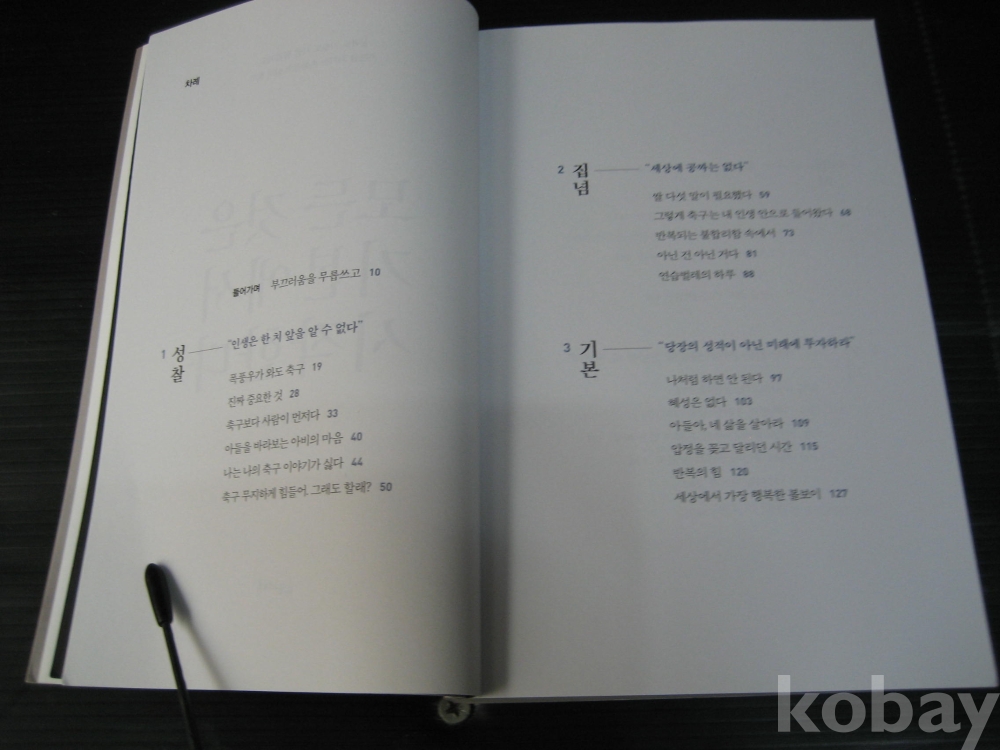 차례
들어가며 부끄러움을 무릅쓰고 10
1 성찰 "인생은 한 치 앞을 알 수 없다"
폭풍우가 와도 축구 19
진짜 중요한 것 28
축구보다 사람이 먼저다 33
아들을 바라보는 아비의 마음 40
나는 나의 축구 이야기가 싫다 44
축구 무지하게 힘들어, 그래도 할래? 50
2 집념 "세상에 공짜는 없다"
쌀 다섯 말이 필요했다 59
그렇게 축구는 내 인생 안으로 들어왔다 68
반복되는 불합리함 속에서 73
아닌 건 아닌 거다 81
연습벌레의 하루 88
3 기본 "당장의 성적이 아닌 미래에 투자하라"
나처럼 하면 안 된다 97
혜성은 없다 103
아들아, 네 삶을 살아라 109
압정을 꽂고 달리던 시간 115
반복의 힘 120
세상에서 가장 행복한 볼보이 127
kobay